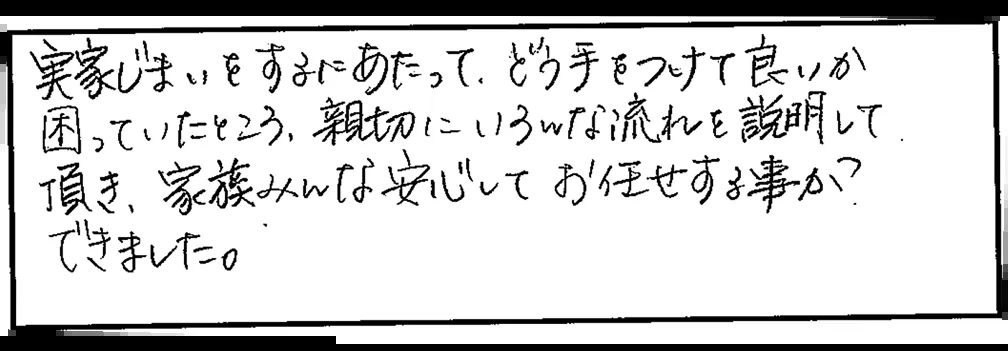 実家じまいをするにあたって、どう手をつけて良いか
困っていたところ、親切にいろんな流れを説明して
頂き、家族みんな安心してお任せする事が
できました。